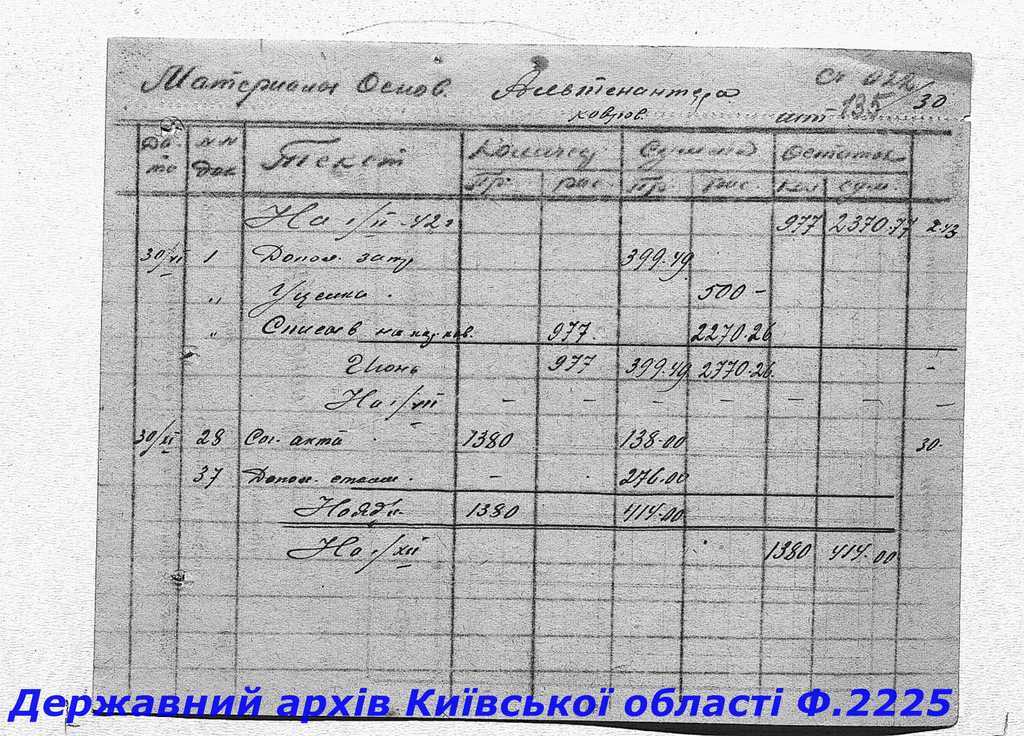 Материалы Основ. Альтенантера
Ст 422/30
ковров. шт 135
Да- та NN док Текст Количес Сумма Остаток
Пр. рас. Пр. рас. Кол сум.
На 1/VI-42 г 977 2370.77 2.43
30/VI 1 Допол. затр 399.49
" Уценка 500 -
" Списыв 977. 2270.26
Июнь 977 399.49 2770.26 -
На 1/VII - - - - - - -
30/XI 28 Сог. акта 1380 138.00 30.
37 Допол. - 276.00
Ноябрь 1380 414.00
На 1/XII 1380 414.00
Державний архів Київської області Ф.2225